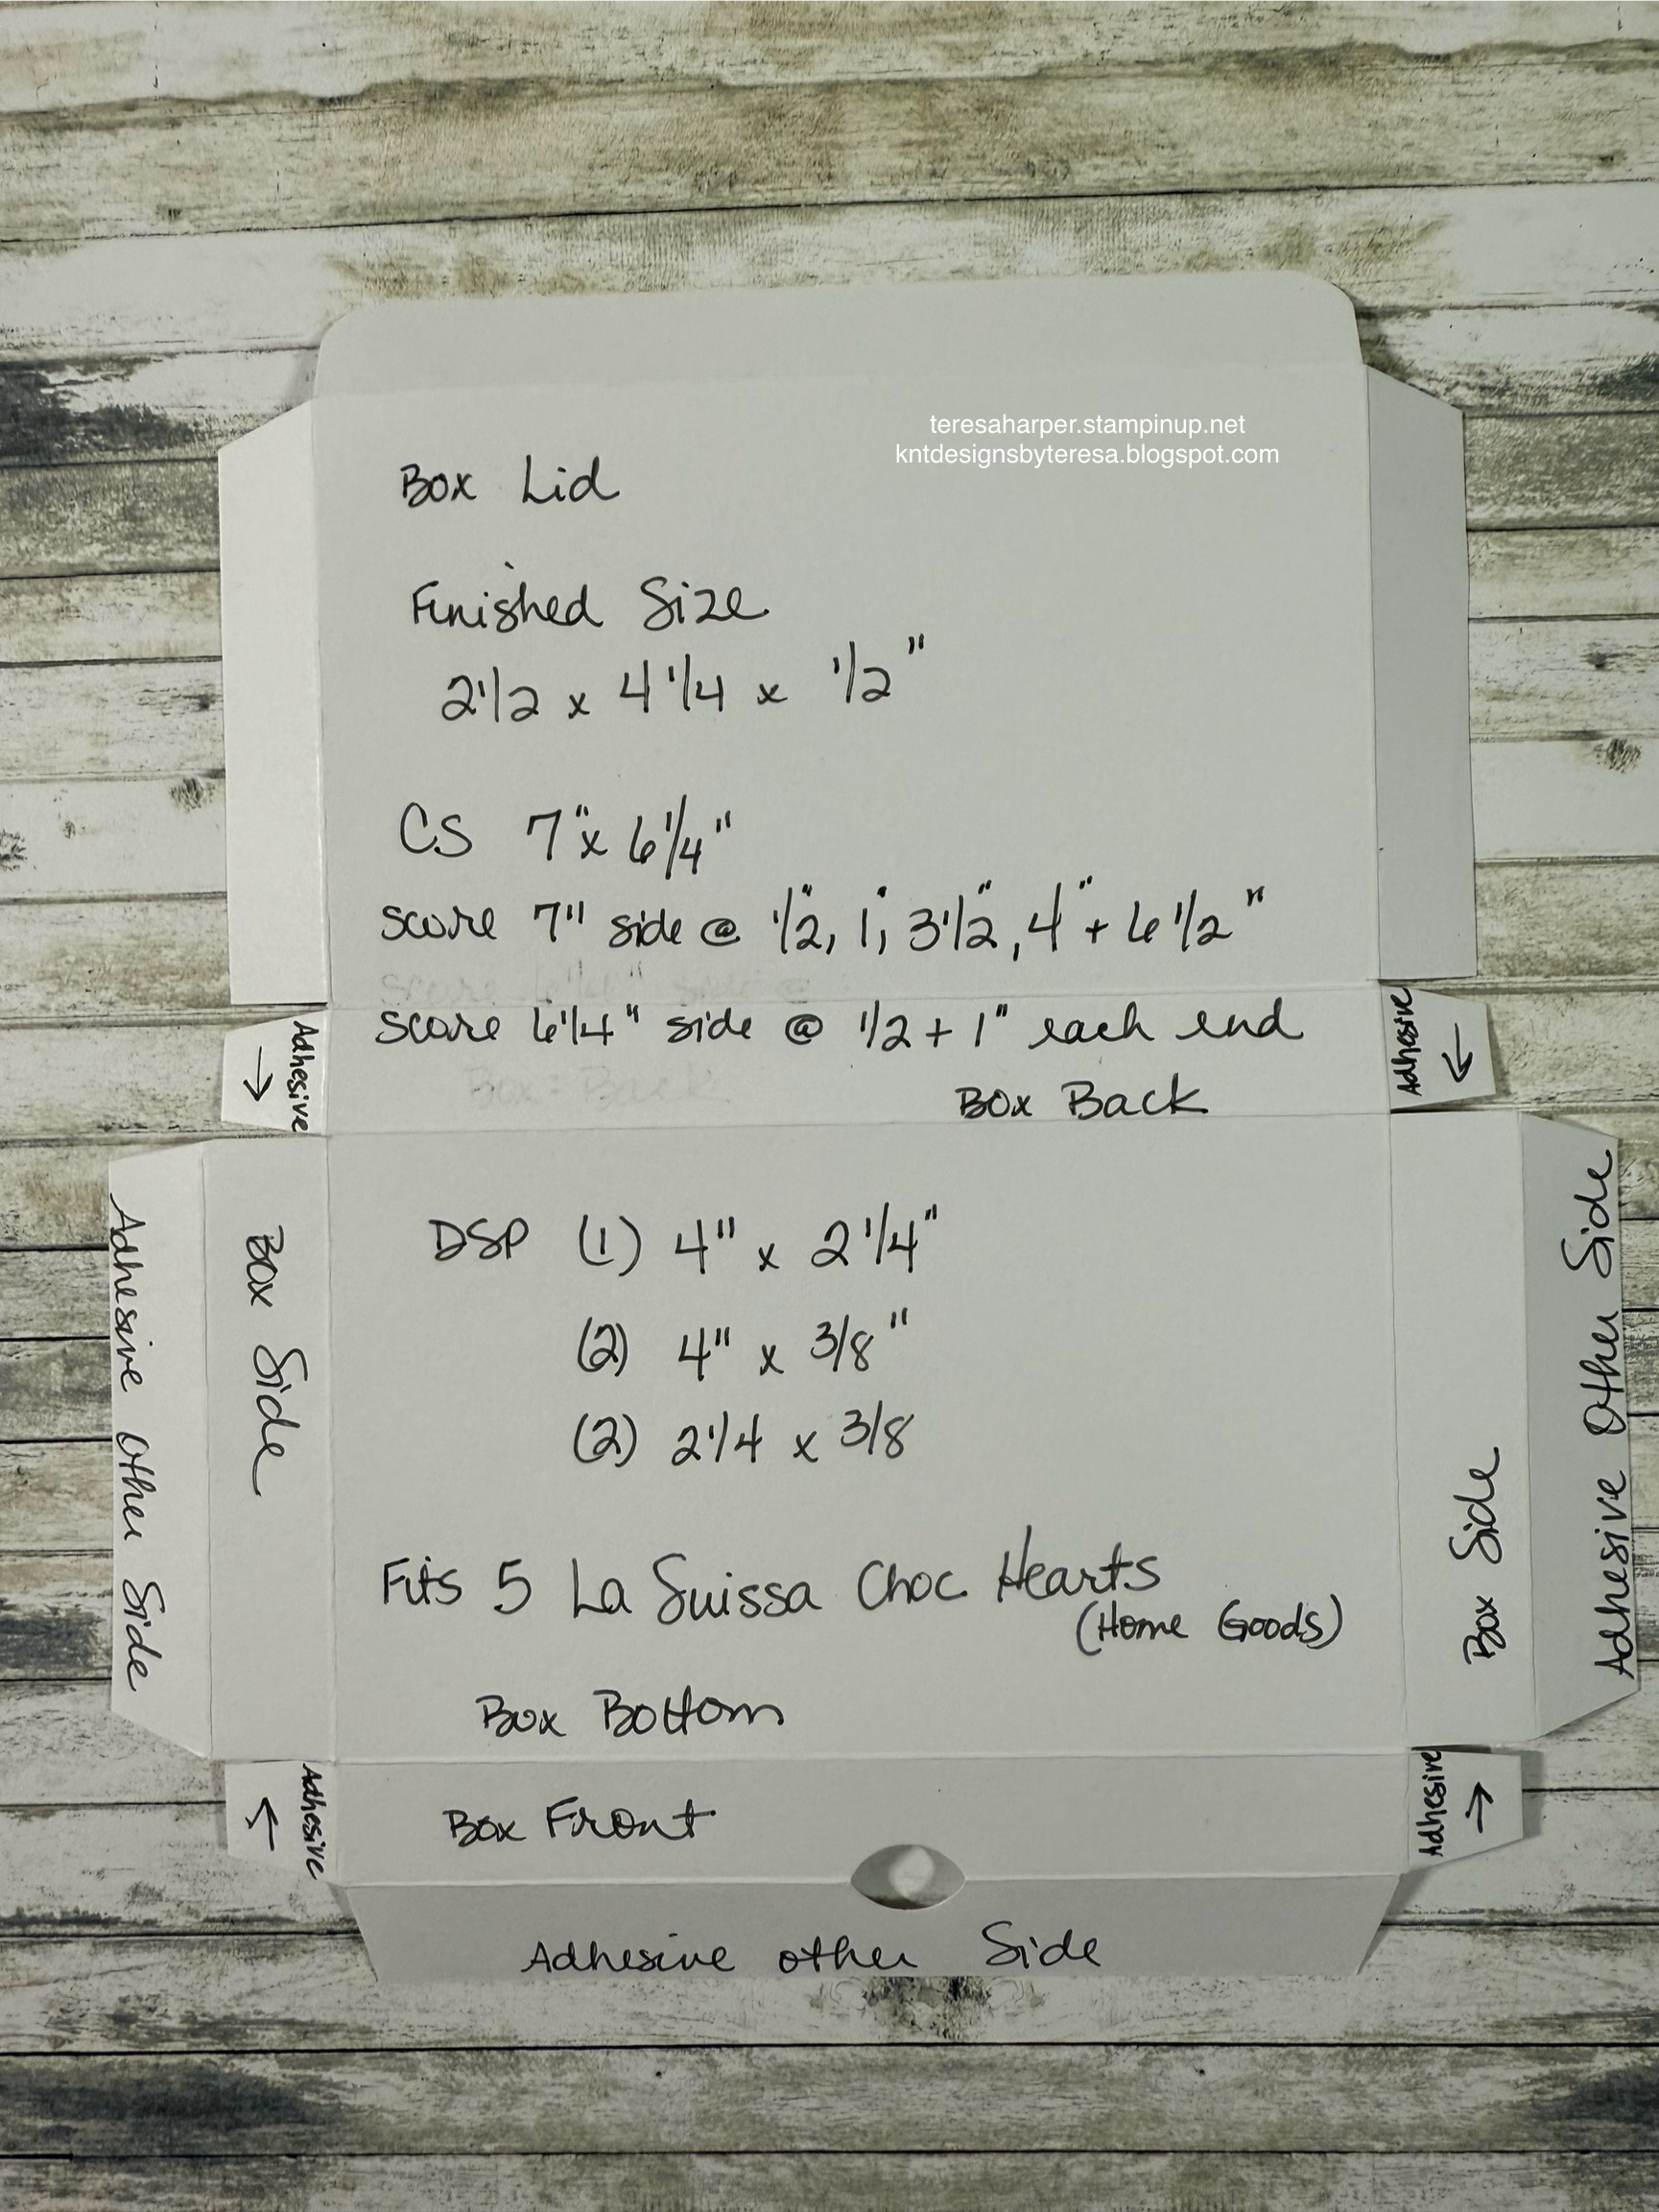 teresaharper.stampinup.net
kntdesignsbyteresa.blogspot.com
Box Lid
Finished Size
2 1/2 x 4 1/4 x 1/2"
CS 7" x 6 1/4"
score 7" side @ 1/2", 1", 3 1/2", 4" + 6 1/2"
score 6 1/4" side @ 1/2 + 1" each end
Box Back
Adhesive →
Adhesive ←
DSP (1) 4" x 2 1/4"
(2) 4" x 3/8"
(2) 2 1/4 x 3/8
Fits 5 La Suissa Choc Hearts
(Home Goods)
Box Bottom
Adhesive Other Side
Box Side
Box Side
Adhesive Other Side
Adhesive ←
Box Front
Adhesive →
Adhesive other Side